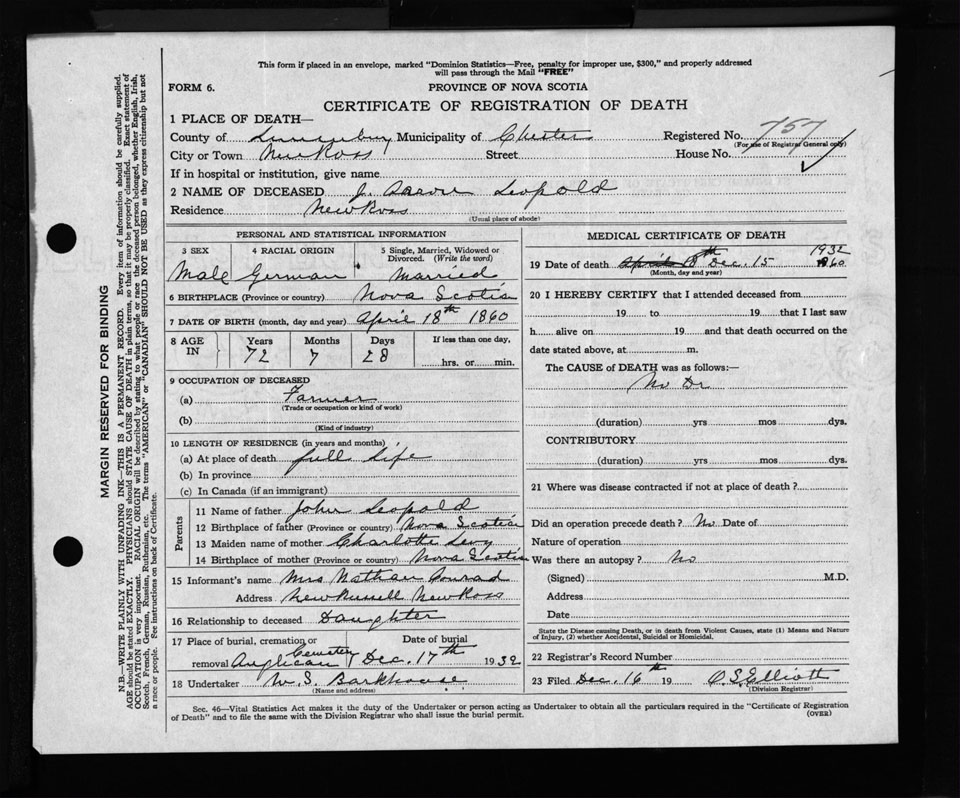 This form if placed in an envelope, marked "Dominion Statistics—Free, penalty for improper use, $300," and properly addressed
will pass through the Mail "FREE"
FORM 6.
PROVINCE OF NOVA SCOTIA
CERTIFICATE OF REGISTRATION OF DEATH
1 PLACE OF DEATH—
County of Lunenburg Municipality of Chester Registered No. 757
(For use of Registrar General only)
City or Town New Ross Street House No.
If in hospital or institution, give name
2 NAME OF DECEASED J. Aaron Leopold
Residence New Ross
(Usual place of abode)
PERSONAL AND STATISTICAL INFORMATION
3 SEX 4 RACIAL ORIGIN 5 Single, Married, Widowed or
Divorced. (Write the word)
Male German Married
6 BIRTHPLACE (Province or country) Nova Scotia
7 DATE OF BIRTH (month, day and year) April 18th 1860
8 AGE IN Years Months Days If less than one day,
72 7 28 hrs. or min.
9 OCCUPATION OF DECEASED
(a) Farmer
(Trade or occupation or kind of work)
(b)
(Kind of industry)
10 LENGTH OF RESIDENCE (in years and months)
(a) At place of death full life
(b) In province
(c) In Canada (if an immigrant)
Parents
11 Name of father John Leopold
12 Birthplace of father (Province or country) Nova Scotia
13 Maiden name of mother Charlotte Levy
14 Birthplace of mother (Province or country) Nova Scotia
15 Informant's name Mrs Nathan Conrad
Address New Russell New Ross
16 Relationship to deceased Daughter
17 Place of burial, cremation or Date of burial
removal Anglican Cemetery Dec. 17th 1932
18 Undertaker W. S. Barkhouse
(Name and address)
MEDICAL CERTIFICATE OF DEATH
19 Date of death April 18th Dec. 15 1932 1860
(Month, day and year)
20 I HEREBY CERTIFY that I attended deceased from
19 to 19 that I last saw
h alive on 19 and that death occurred on the
date stated above, at m.
The CAUSE of DEATH was as follows:—
No Dr
(duration) yrs mos dys.
CONTRIBUTORY
(duration) yrs mos dys.
21 Where was disease contracted if not at place of death?
Did an operation precede death? No Date of
Nature of operation
Was there an autopsy? No
(Signed) M.D.
Address
Date
State the Disease causing Death, or in death from Violent Causes, state (1) Means and Nature
of Injury, (2) whether Accidental, Suicidal or Homicidal.
22 Registrar's Record Number
23 Filed Dec. 16th 19 O. S. Elliott
(Division Registrar)
Sec. 46—Vital Statistics Act makes it the duty of the Undertaker or person acting as Undertaker to obtain all the particulars required in the "Certificate of Registration
of Death" and to file the same with the Division Registrar who shall issue the burial permit.
(OVER)
MARGIN RESERVED FOR BINDING
N.B.—WRITE PLAINLY WITH UNFADING INK—THIS IS A PERMANENT RECORD. Every item of information should be carefully supplied.
AGE should be stated EXACTLY. PHYSICIANS should STATE CAUSE OF DEATH in plain terms, so that it may be properly classified. Exact statement of
OCCUPATION is very important. RACIAL ORIGIN will be described by stating to what people or race the deceased person belonged, whether English, Irish,
Scotch, French, German, Russian, Ruthenian, etc. The terms "AMERICAN" or "CANADIAN" SHOULD NOT BE USED as they express citizenship but not
a race or people. See instructions on back of Certificate.